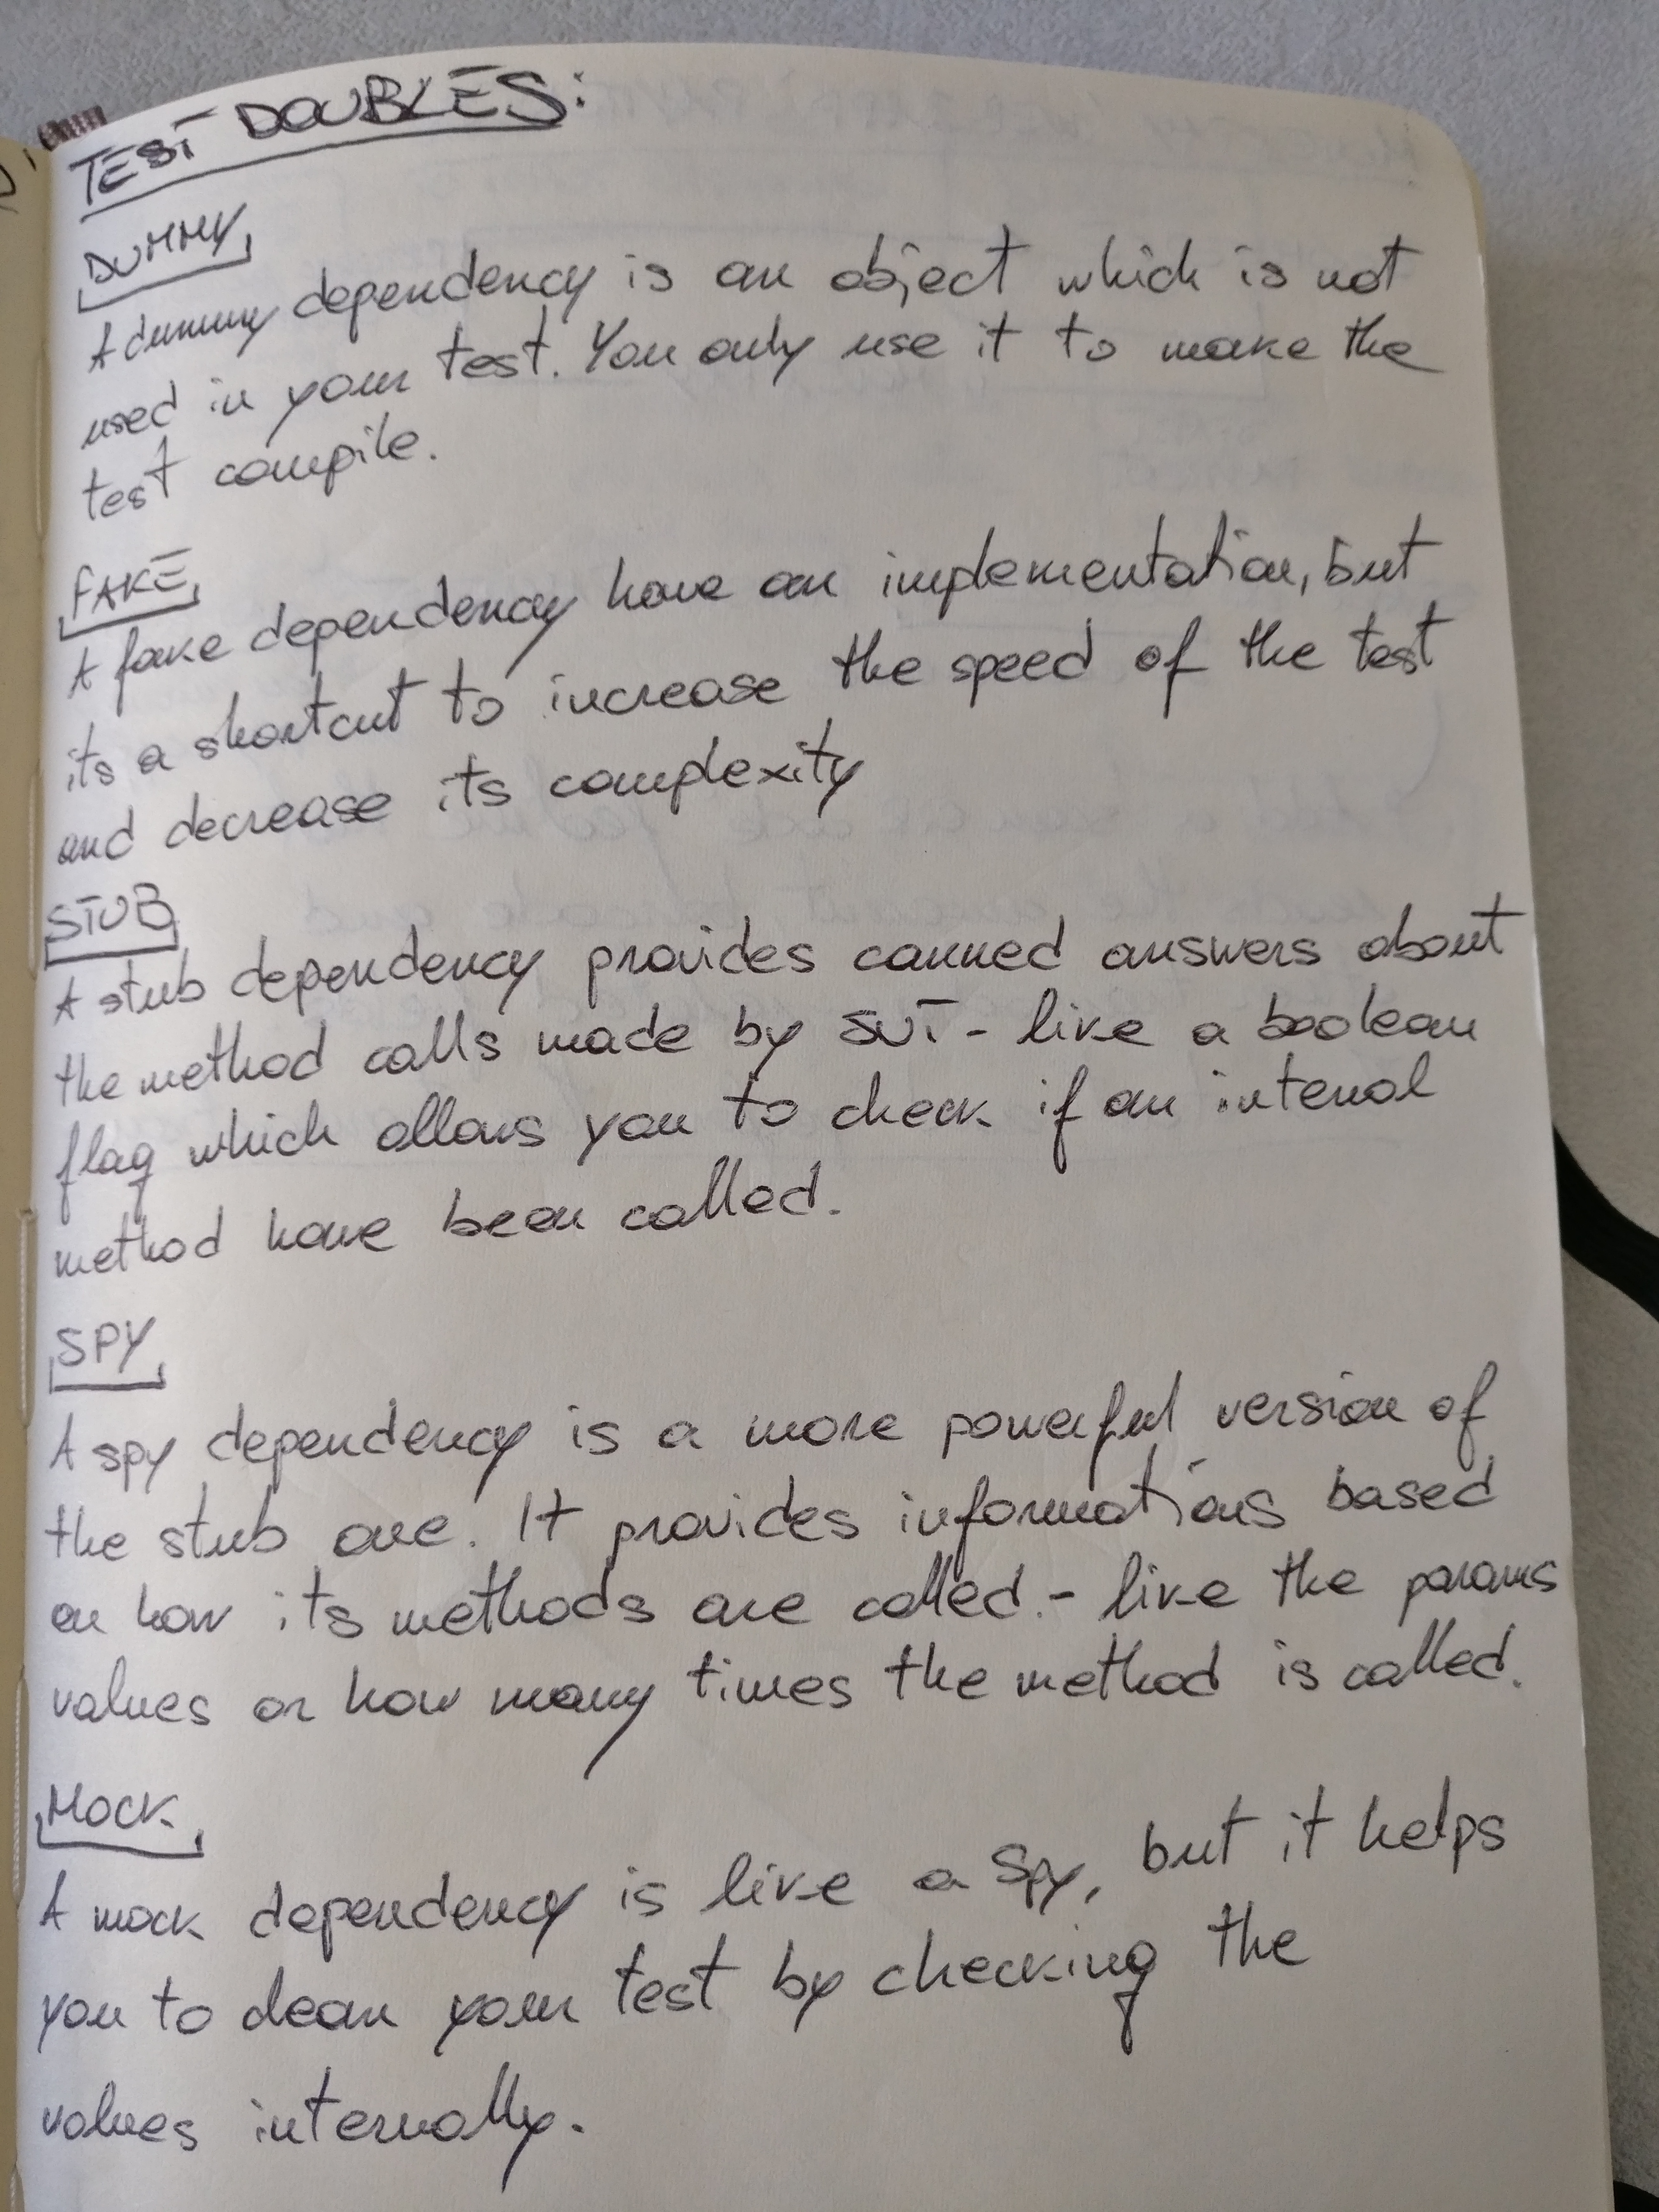 TEST DOUBLES:
DUMMY
A dummy dependency is an object which is not
used in your test. You only use it to make the
test compile.
FAKE
A fake dependency have an implementation, but
its a shortcut to increase the speed of the test
and decrease its complexity
STUB
A stub dependency provides canned answers about
the method calls made by SUT - like a boolean
flag which allows you to check if an internal
method have been called.
SPY
A spy dependency is a more powerful version of
the stub one. It provides informations based
on how its methods are called. - like the params
values or how many times the method is called.
MOCK
A mock dependency is like a Spy, but it helps
you to clean your test by checking the
values internally.